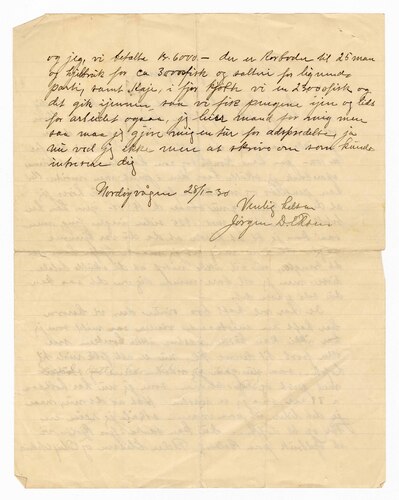 og jeg, vi betalte Kr 6000.— der er Rorboder til 25 man
og hjellbrük for ca 30000 fisk og salteri for lignende
parti, samt Kaje, i fjor kjøbte vi en 23000 fisk og
det gik ijennem saa vi fik pengene ijen og lidt
for arbeidet ogsaa, jeg leier mand for meg men
saa maa jeg gjøre mig en tur for adspredelse, ja
nu ved jeg ikke mere at skrive om som kunde
intresere dig
Nordøyvågen 28/1-30
Venlig hilsen
Jørgen D.